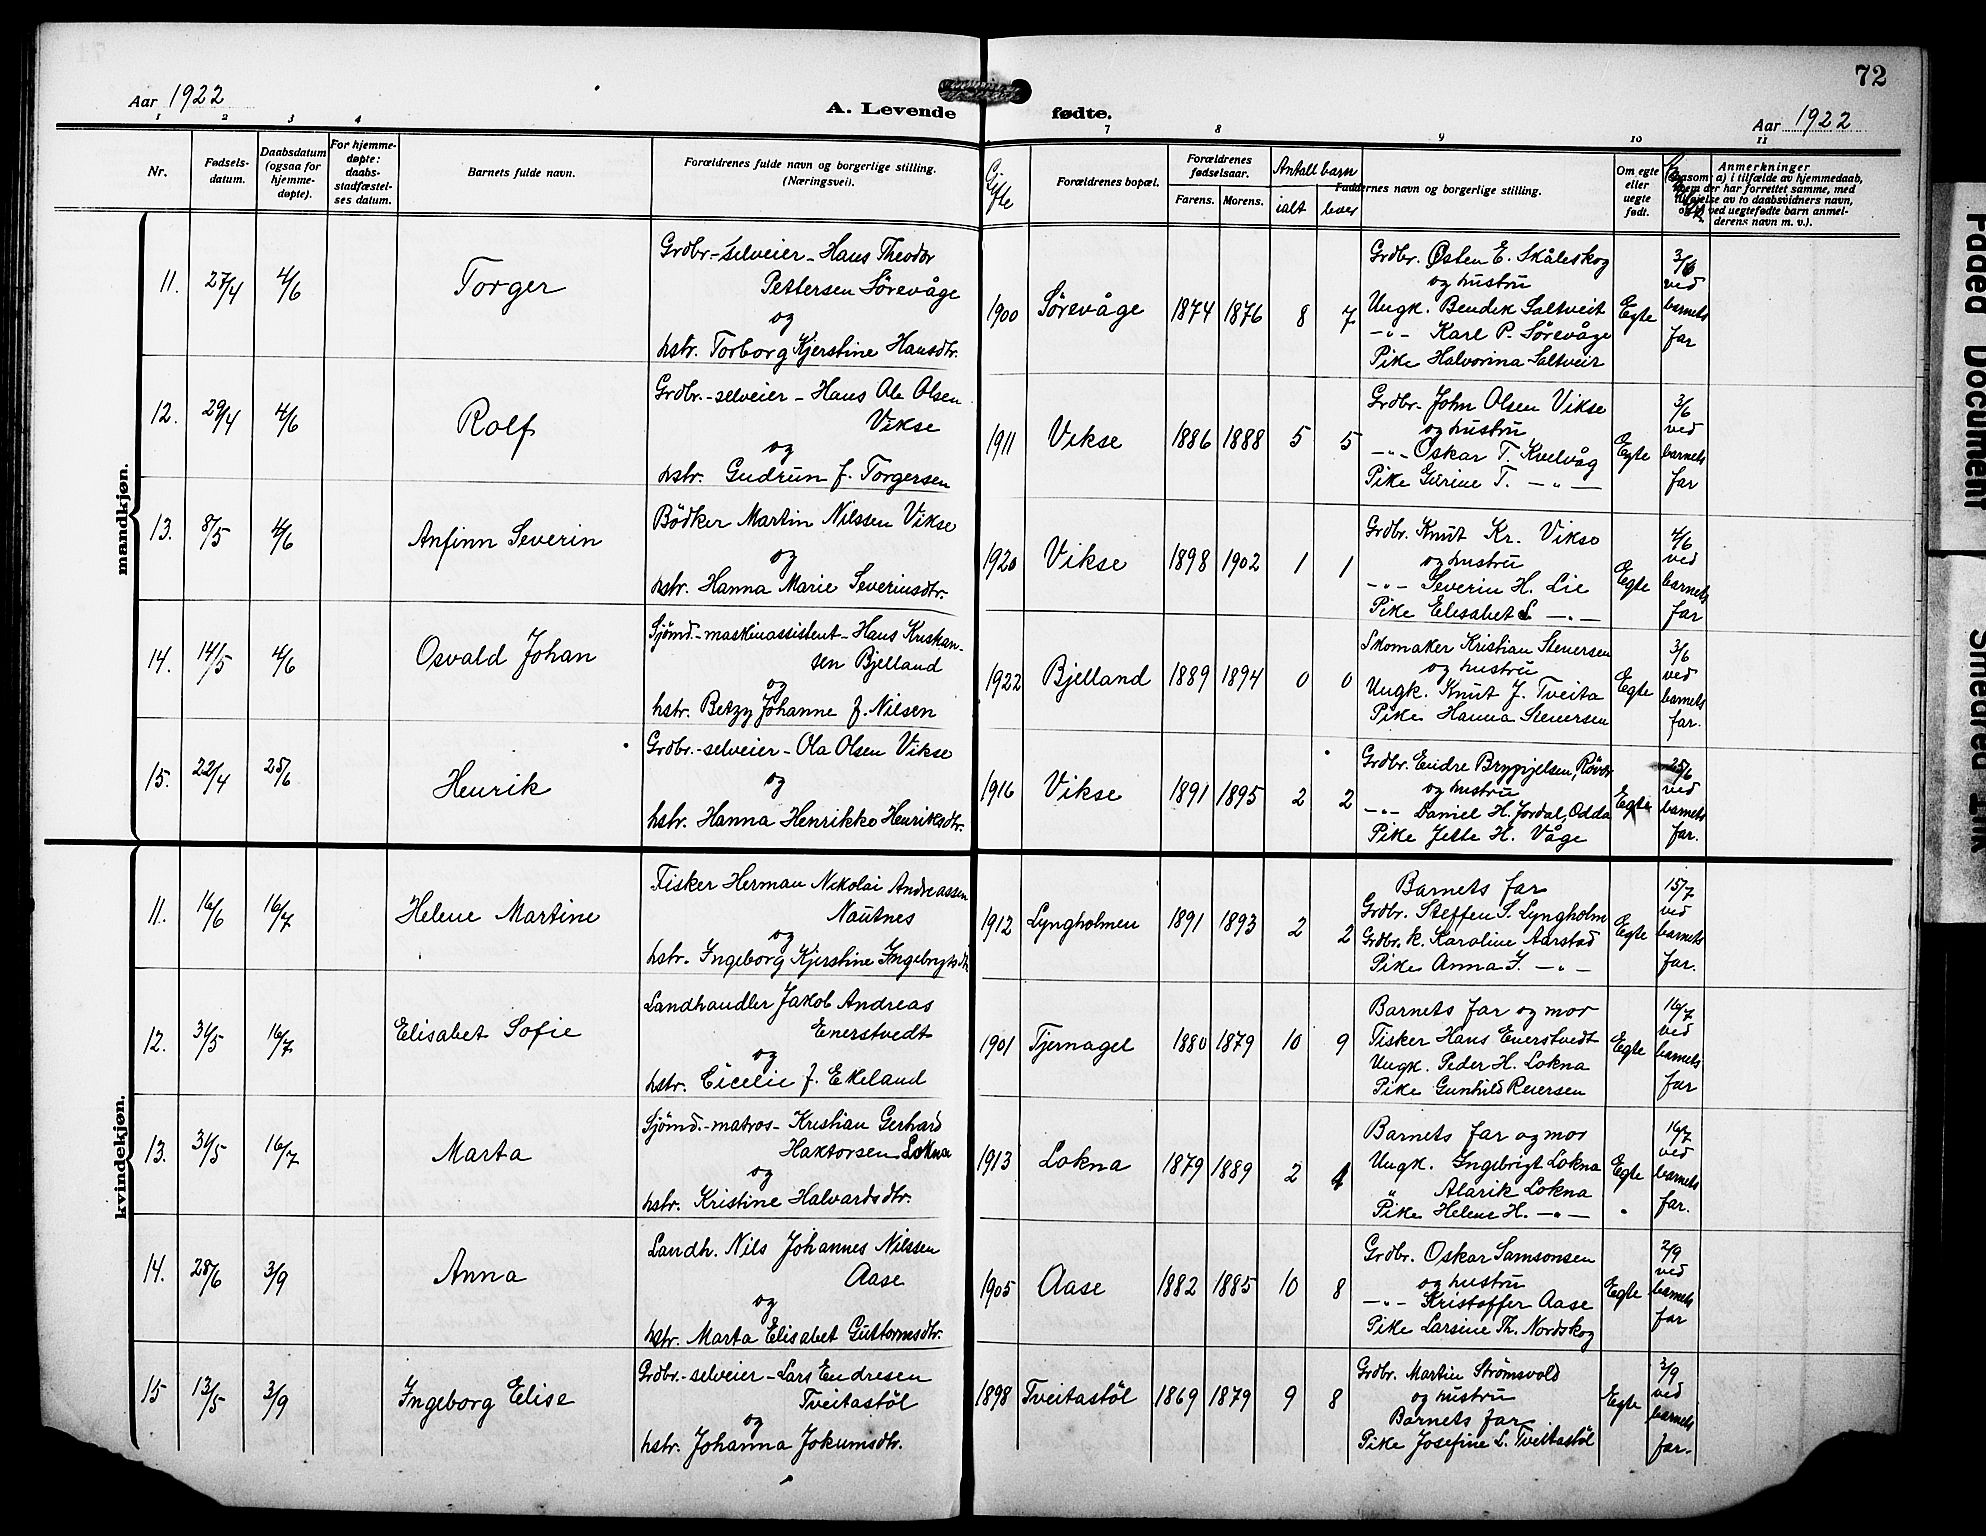 72
Aar 1922
A. Levende
fødte.
Aar 1922
1 2 3 4 7 8 9 10 11
Nr.
Fødsels-
datum.
Daabsdatum
(ogsaa for
hjemme-
døpte).
For hjemme-
døpte:
daabs-
stadfæstel-
ses datum.
Barnets fulde navn.
Forældrenes fulde navn og borgerlige stilling.
(Næringsvei.)
Gifte
Forældrenes bopæl.
Forældrenes
fødselsaar.
Farens. Morens.
Antall barn
ialt lever
Faddernes navn og borgerlige stilling.
Om egte
eller
uegte
født.
Anmerkninger
(saasom: a) i tilfælde av hjemmedaab,
hvem der har forrettet samme, med
tilføielse av to daabsvidners navn,
ved uegtefødte barn anmel-
derens navn m. v.).
mandkjøn.
11. 27/4 4/6 Torger
Grdbr.-selveier - Hans Theodor
Pettersen Sörevåge
og
hstr. Torborg Kjerstine Hansdtr.
1900 Sörevåge 1874 1876 8 7
Grdbr. Östen E. Skåleskog
og hustru
Ungk. Bendik Saltveit
-"- Karl P. Sörevåge
Pike Halvorina Saltveit
Egte
3/6
ved
barnets
far
12. 29/4 4/6 Rolf
Grdbr.-selveier - Hans Ole Olsen
Vikse
og
hstr. Gudrun f. Torgersen
1911 Vikse 1886 1888 5 5
Grdbr. John Olsen Vikse
og hustru
-"- Oskar T. Kvelvåg
Pike Gurine T. -"-
Egte
3/6
ved
barnets
far
13. 8/5 4/6 Anfinn Severin
Bödker Martin Nilssen Vikse
og
hstr. Hanna Marie Severinsdtr.
1920 Vikse 1898 1902 1 1
Grdbr. Knut Kr. Vikse
og hustru
-"- Severin H. Lie
Pike Elisabet S -"-
Egte
4/6
ved
barnets
far
14. 14/5 4/6 Osvald Johan
Sjömd.-maskinassistent - Hans Kristian-
sen Bjelland
og
hstr. Betzy Johanne f. Nilsen
1922 Bjelland 1889 1894 0 0
Skomaker Kristian Steversen
og hustru
Ungk. Knut J. Tveita
Pike Hanna Steversen
Egte
3/6
ved
barnets
far.
15. 22/4 25/6 Henrik
Grdbr.-selveier - Ola Olsen Vikse
og
hstr. Hanna Henrikke Henriksdtr.
1916 Vikse 1891 1895 2 2
Grdbr. Endre Brynjelsen,
og hustru
-"- Daniel H. Jordal, Odda
Pike Jette H. Våge
Egte
25/6
ved
barnets
far.
kvindekjøn.
11. 16/6 16/7 Helene Martine
Fisker Herman Nikolai Andreassen
Nautnes
og
hstr. Ingeborg Kjerstine Ingebrigtsdtr.
1912 Lyngholmen 1891 1893 2 2
Barnets far
Grdbr. Steffen S. Lyngholm
Grdbr. k. Karoline Aarstad
Pike Anna J. -"-
Egte
15/7
ved
barnets
far.
12. 31/5 16/7 Elisabet Sofie
Landhandler Jakob Andreas
Enerstvedt
og
hstr. Cicelie f. Ekeland
1901 Tjernagel 1880 1879 10 9
Barnets far og mor
Fisker Hans Enerstvedt
Ungk. Peder H. Lokna
Pike Gunhild Reiersen
Egte
16/7
ved
barnets
far
13. 31/5 16/7 Marta
Sjömd.-matros - Kristian Gerhard
Haktorsen Lokna
og
hstr. Kristine Halvardsdtr.
1913 Lokna 1879 1889 2 1
Barnets far og mor
Ungk. Ingebrigt Lokna
" Alarik Lokna
Pike Helene H. -"-
Egte
16/7
ved
barnets
far.
14. 28/6 3/9 Anna
Landh. Nils Johannes Nilssen
Aase
og
hstr. Marta Elisabet Guttormsdtr.
1905 Aase 1882 1885 10 8
Grdbr. Oskar Samsonsen
og hustru
-"- Kristoffer Aase
Pike Larsine Th. Nordskog
Egte
2/9
ved
barnets
far
15 13/5 3/9 Ingeborg Elise
Grdbr.-selveier - Lars Endresen
Tveitastöl
og
hstr. Johanna Jokumsdtr.
1898 Tveitastöl 1869 1879 9 8
Grdbr. Martin Strömsvold
og hustru
Barnets far
Pike Josefine L. Tveitastöl
Egte
3/9
ved
barnets
far.
Faded Document
Smeared Ink